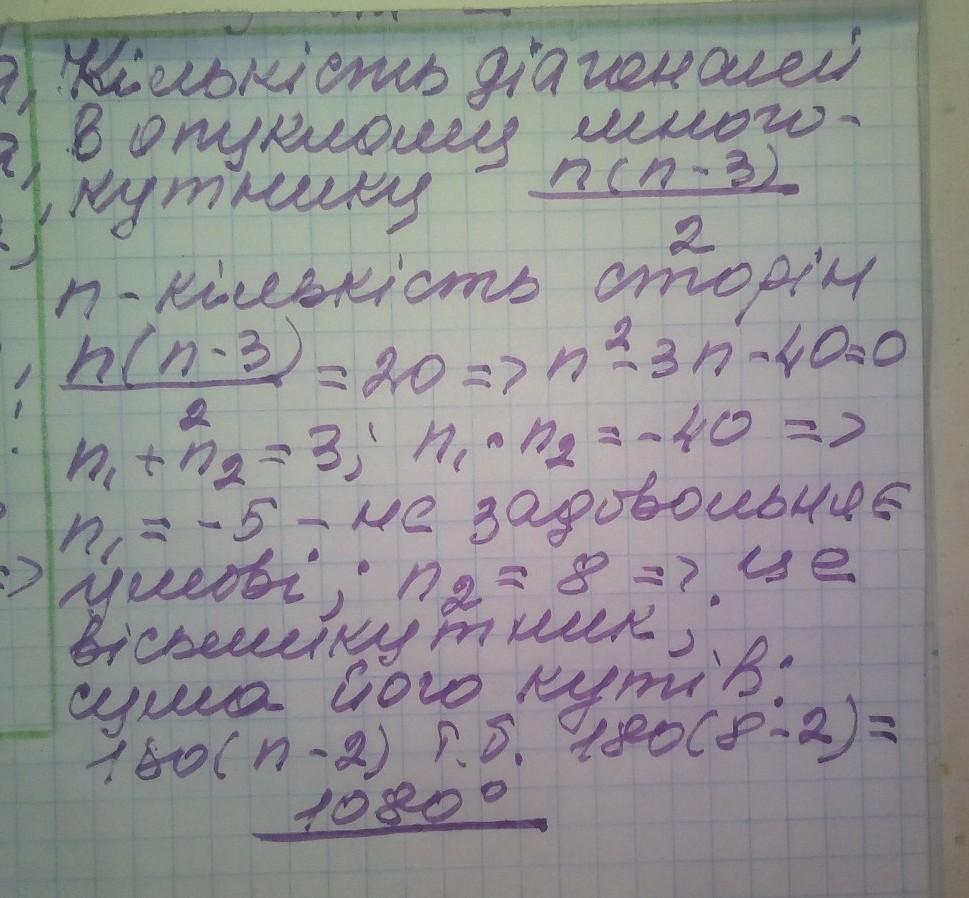 Кількість діагоналей
в опуклому много-
кутнику n(n-3)
2
n - кількість сторін
n(n-3)/2 = 20 => n²-3n-40=0
n₁+n₂=3; n₁·n₂=-40 =>
n₁ = -5 - не задовольняє
умові; n₂ = 8 => це
вісьмикутник;
сума його кутів:
180(n-2) т.б. 180(8-2)=
1080°